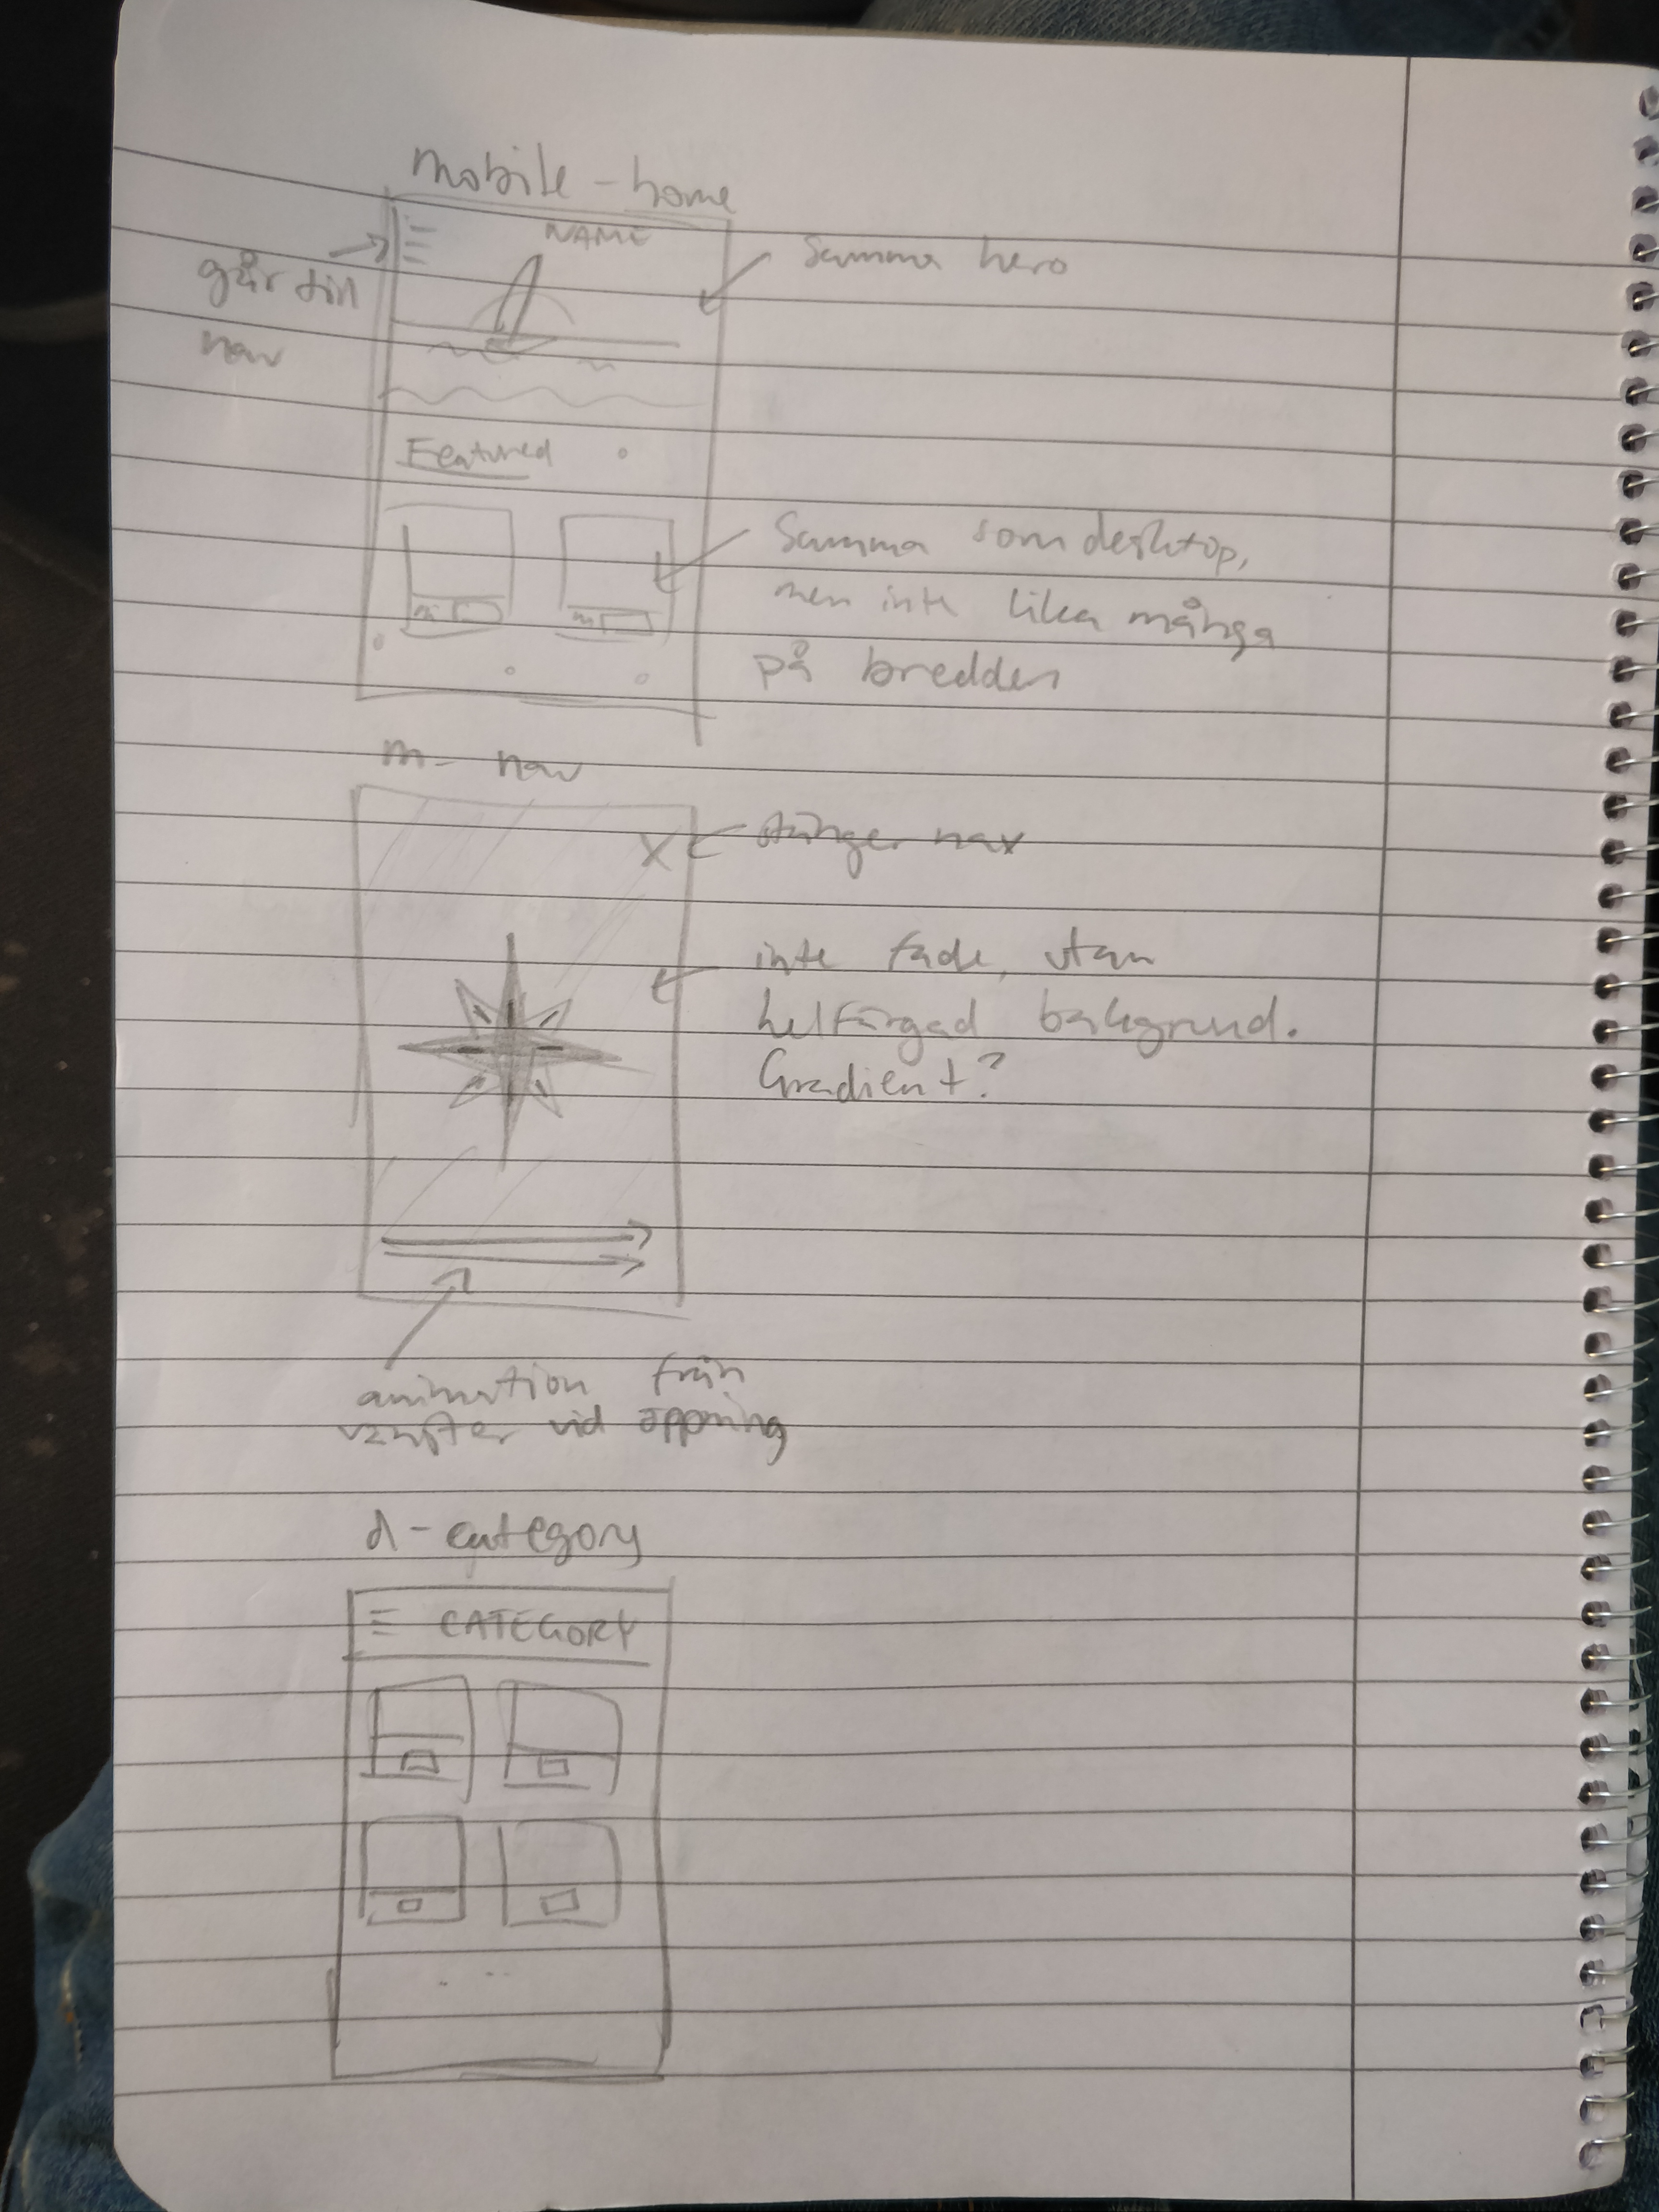 mobile - home
NAME
går till
nav
Samma hero
Featured
Samma som desktop,
men inte lika många
på bredden
m- nav
X
stänger nav
inte fade, utan
helfärgad bakgrund.
Gradient?
animation från
vänster vid öppning
d - category
CATEGORY